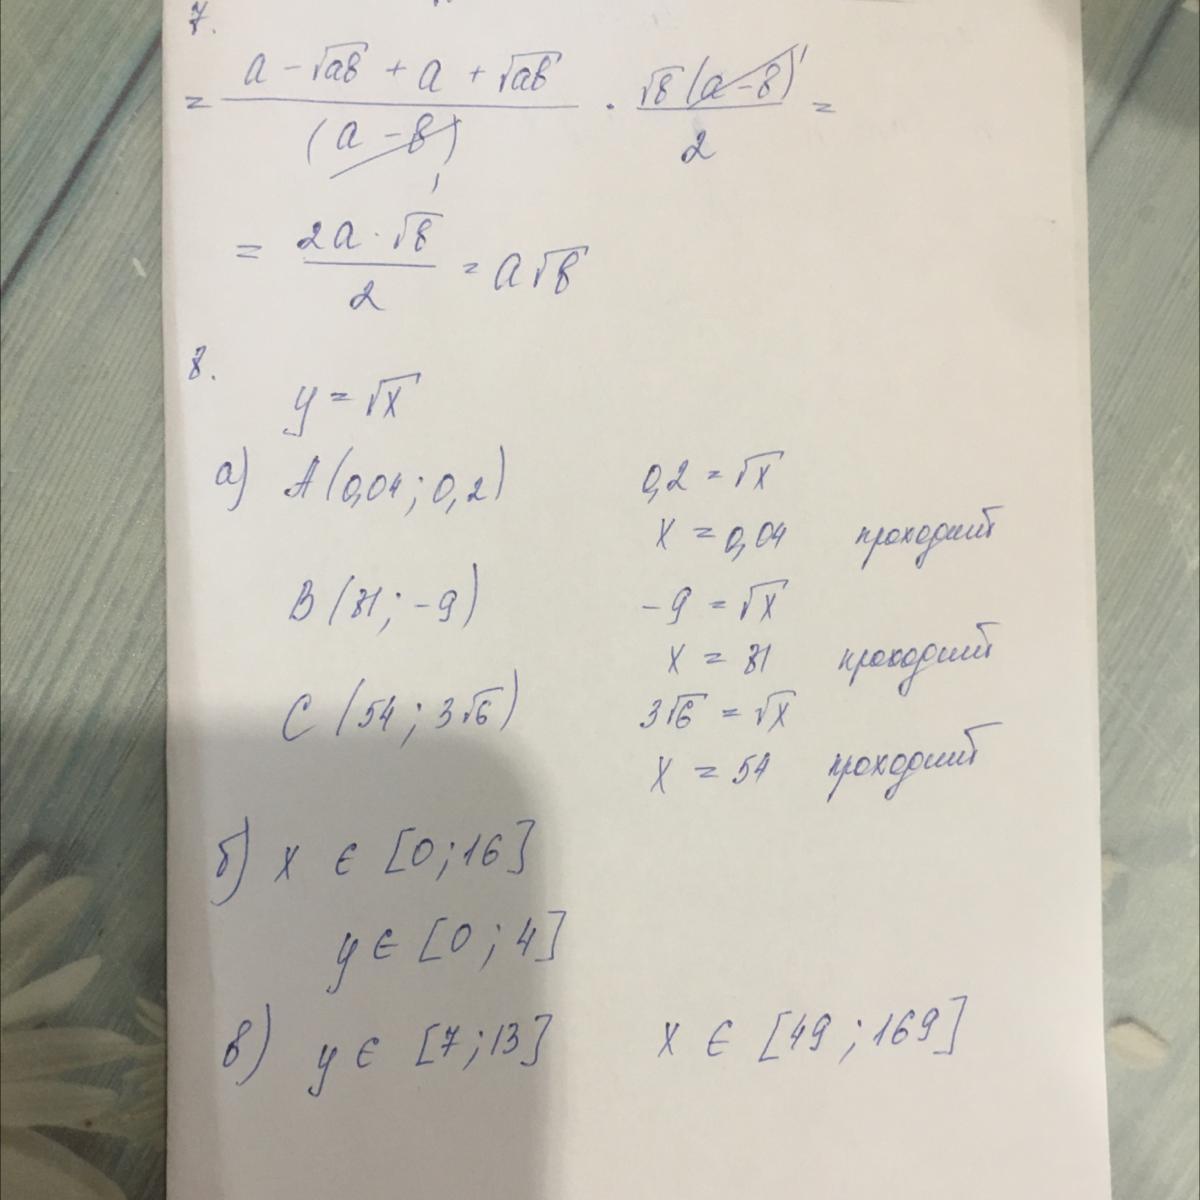 7.
= (a - √ab + a + √ab) / (a - b) · √b (a - b) / 2 =
= 2a · √b / 2 = a√b
8.
y = √x
а) A (0,04 ; 0,2) 0,2 = √x
x = 0,04 проходит
B (81 ; -9) -9 = √x
x = 81 проходит
C (54 ; 3√6) 3√6 = √x
x = 54 проходит
б) x ∈ [0 ; 16]
y ∈ [0 ; 4]
в) y ∈ [7 ; 13] x ∈ [49 ; 169]